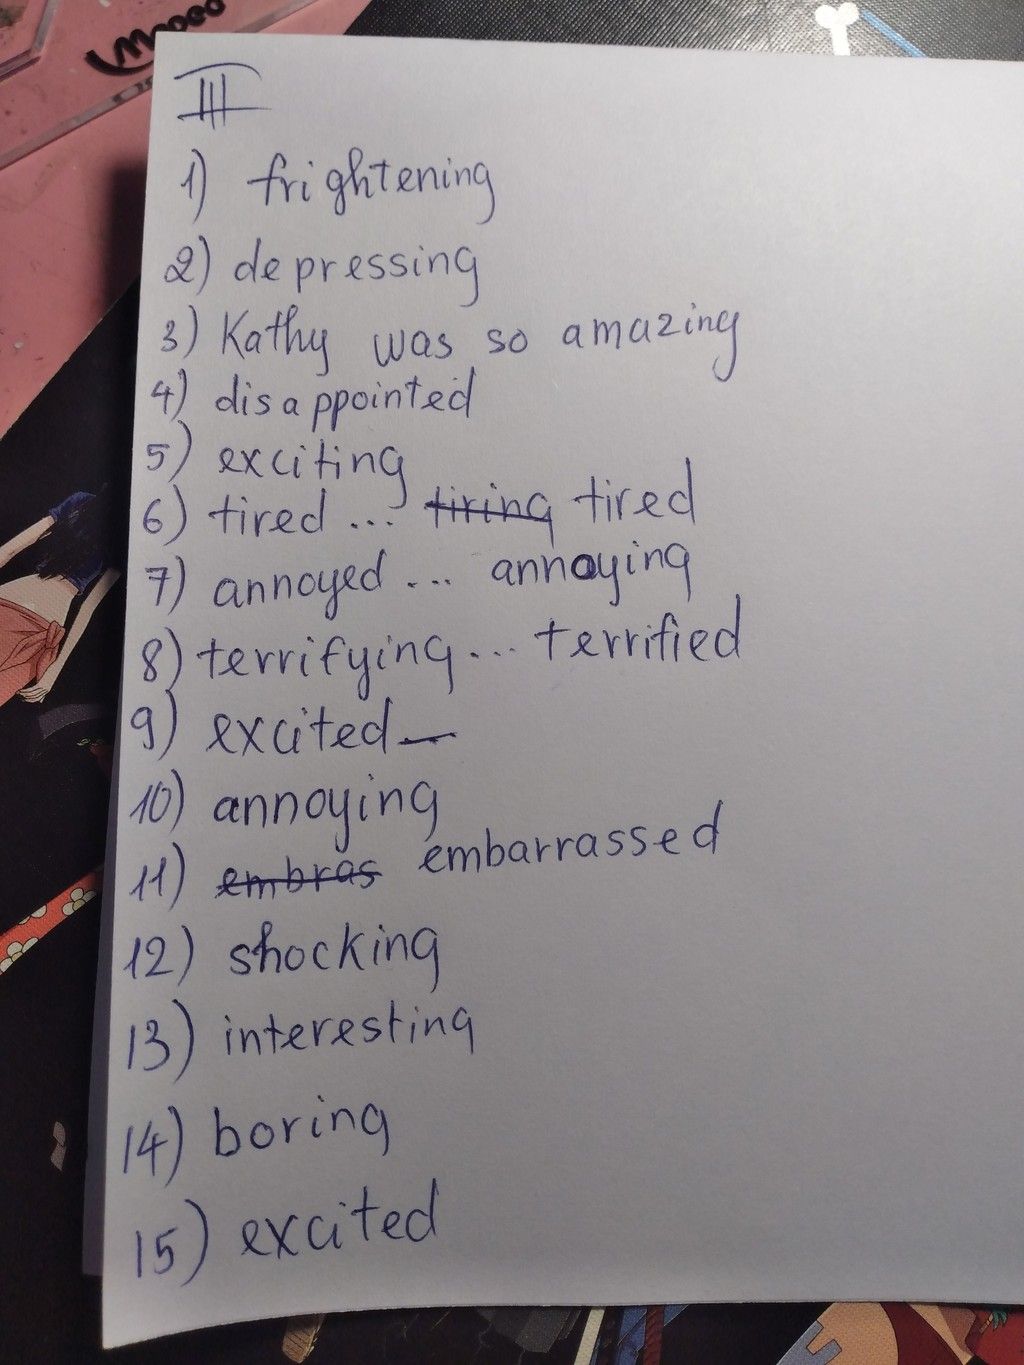 Maped
III
1) frightening
2) depressing
3) Kathy was so amazing
4) disappointed
5) exciting
6) tired ... tiring tired
7) annoyed ... annoying
8) terrifying ... terrified
9) excited —
10) annoying
11) embras embarrassed
12) shocking
13) interesting
14) boring
15) excited